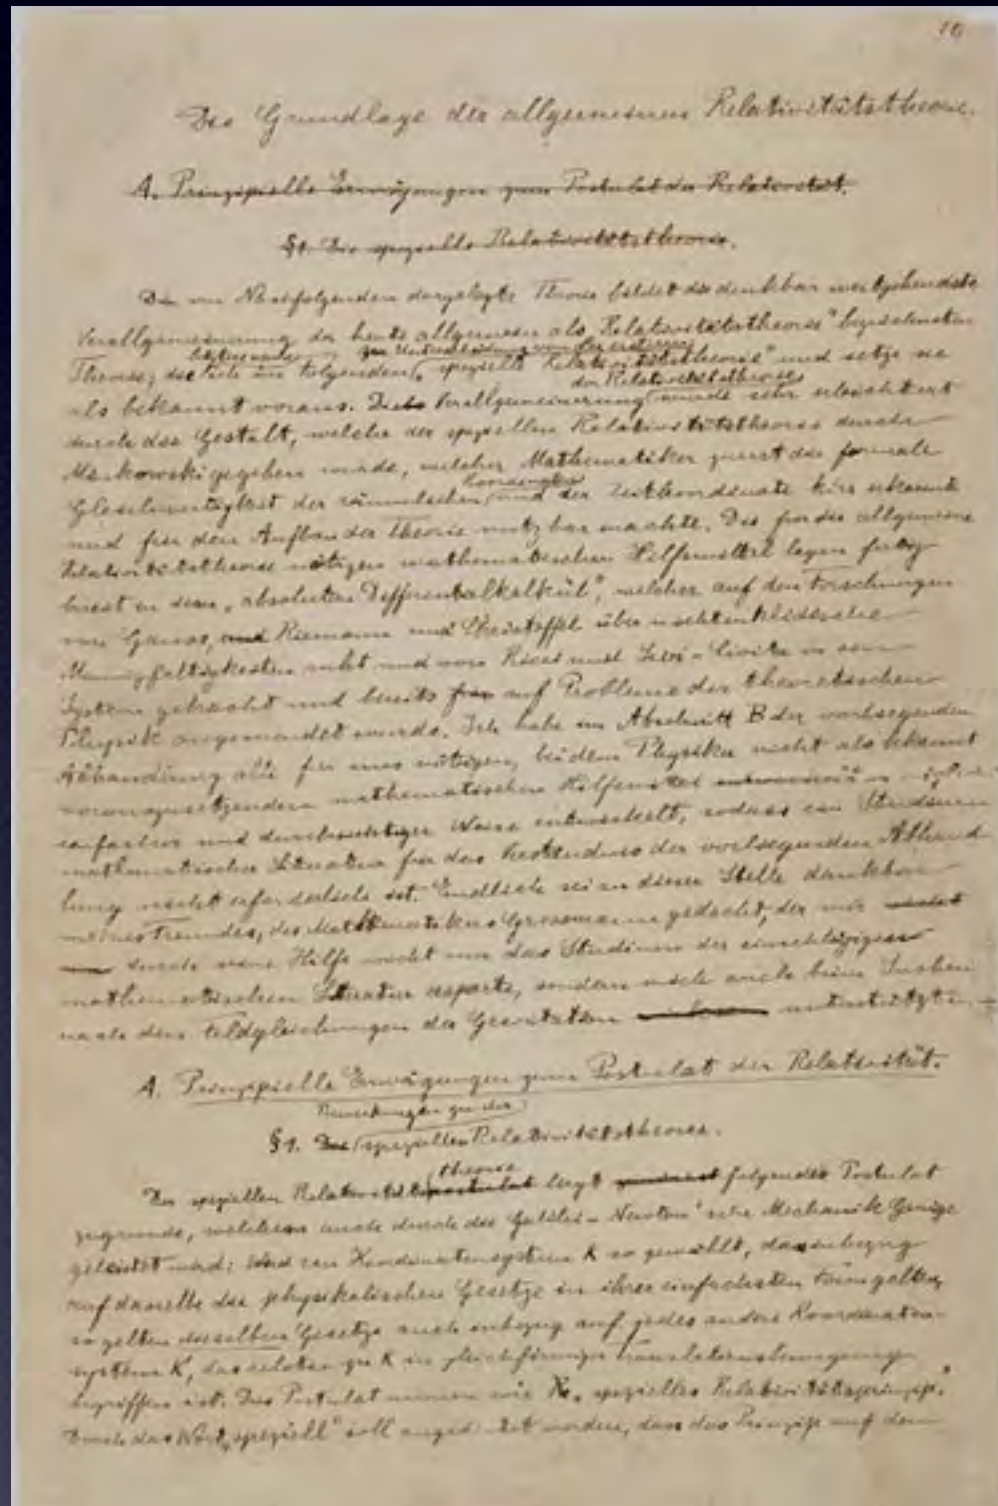 10
Die Grundlage der allgemeinen Relativitätstheorie.
A. Prinzipielle Erwägungen zum Postulat der Relativität.
§1. Die spezielle Relativitätstheorie.
Die im Nachfolgenden dargelegte Theorie bildet die denkbar weitgehendste
Verallgemeinerung der heute allgemein als „Relativitätstheorie" bezeichneten
letztere nenne zur Unterscheidung von der ersteren
Theorie; die ich im folgenden „spezielle Relativitätstheorie" und setze sie
der Relativitätstheorie
als bekannt voraus. Die Verallgemeinerung wurde sehr erleichtert
durch die Gestalt, welche der speziellen Relativitätstheorie durch
Minkowski gegeben wurde, welcher Mathematiker zuerst die formale
Koordinaten
Gleichwertigkeit der räumlichen und der Zeitkoordinate klar erkannte
und für den Aufbau der Theorie nutzbar machte. Die für die allgemeine
Relativitätstheorie nötigen mathematischen Hilfsmittel lagen fertig
bereit in dem „absoluten Differentialkalkül", welcher auf den Forschungen
von Gauss, und Riemann und Christoffel über nichteuklidische
Mannigfaltigkeiten ruht und von Ricci und Levi-Civita in ein
System gebracht und bereits auf Probleme der theoretischen
Physik angewendet wurde. Ich habe im Abschnitt B der vorliegenden
Abhandlung alle für uns nötigen, bei dem Physiker nicht als bekannt
vorauszusetzenden mathematischen Hilfsmittel in
einfacher und durchsichtiger Weise entwickelt, sodass ein Studium
mathematischer Literatur für das Verständnis der vorliegenden Abhand-
lung nicht erforderlich ist. Endlich sei an dieser Stelle dankbar
meines Freundes, des Mathematikers Grossmann gedacht, der mir
durch seine Hilfe nicht nur das Studium der einschlägigen
mathematischen Literatur ersparte, sondern mich auch beim Suchen
nach den Feldgleichungen der Gravitation unterstützte.
A. Prinzipielle Erwägungen zum Postulat der Relativität.
Bemerkungen zu der
§1. Die speziellen Relativitätstheorie.
theorie
Der speziellen Relativitätspostulat liegt folgendes Postulat
zugrunde, welchem auch durch die Galilei-Newton'sche Mechanik Genüge
geleistet wird: Wird ein Koordinatensystem K so gewählt, dass inbezug
auf dasselbe die physikalischen Gesetze in ihrer einfachsten Form gelten,
so gelten dieselben Gesetze auch inbezug auf jedes andere Koordinaten-
system K', das relativ zu K in gleichförmiger Translationsbewegung
begriffen ist. Dies Postulat nennen wir „spezielles Relativitätsprinzip."
Durch das Wort „speziell" soll angedeutet werden, dass das Prinzip auf den